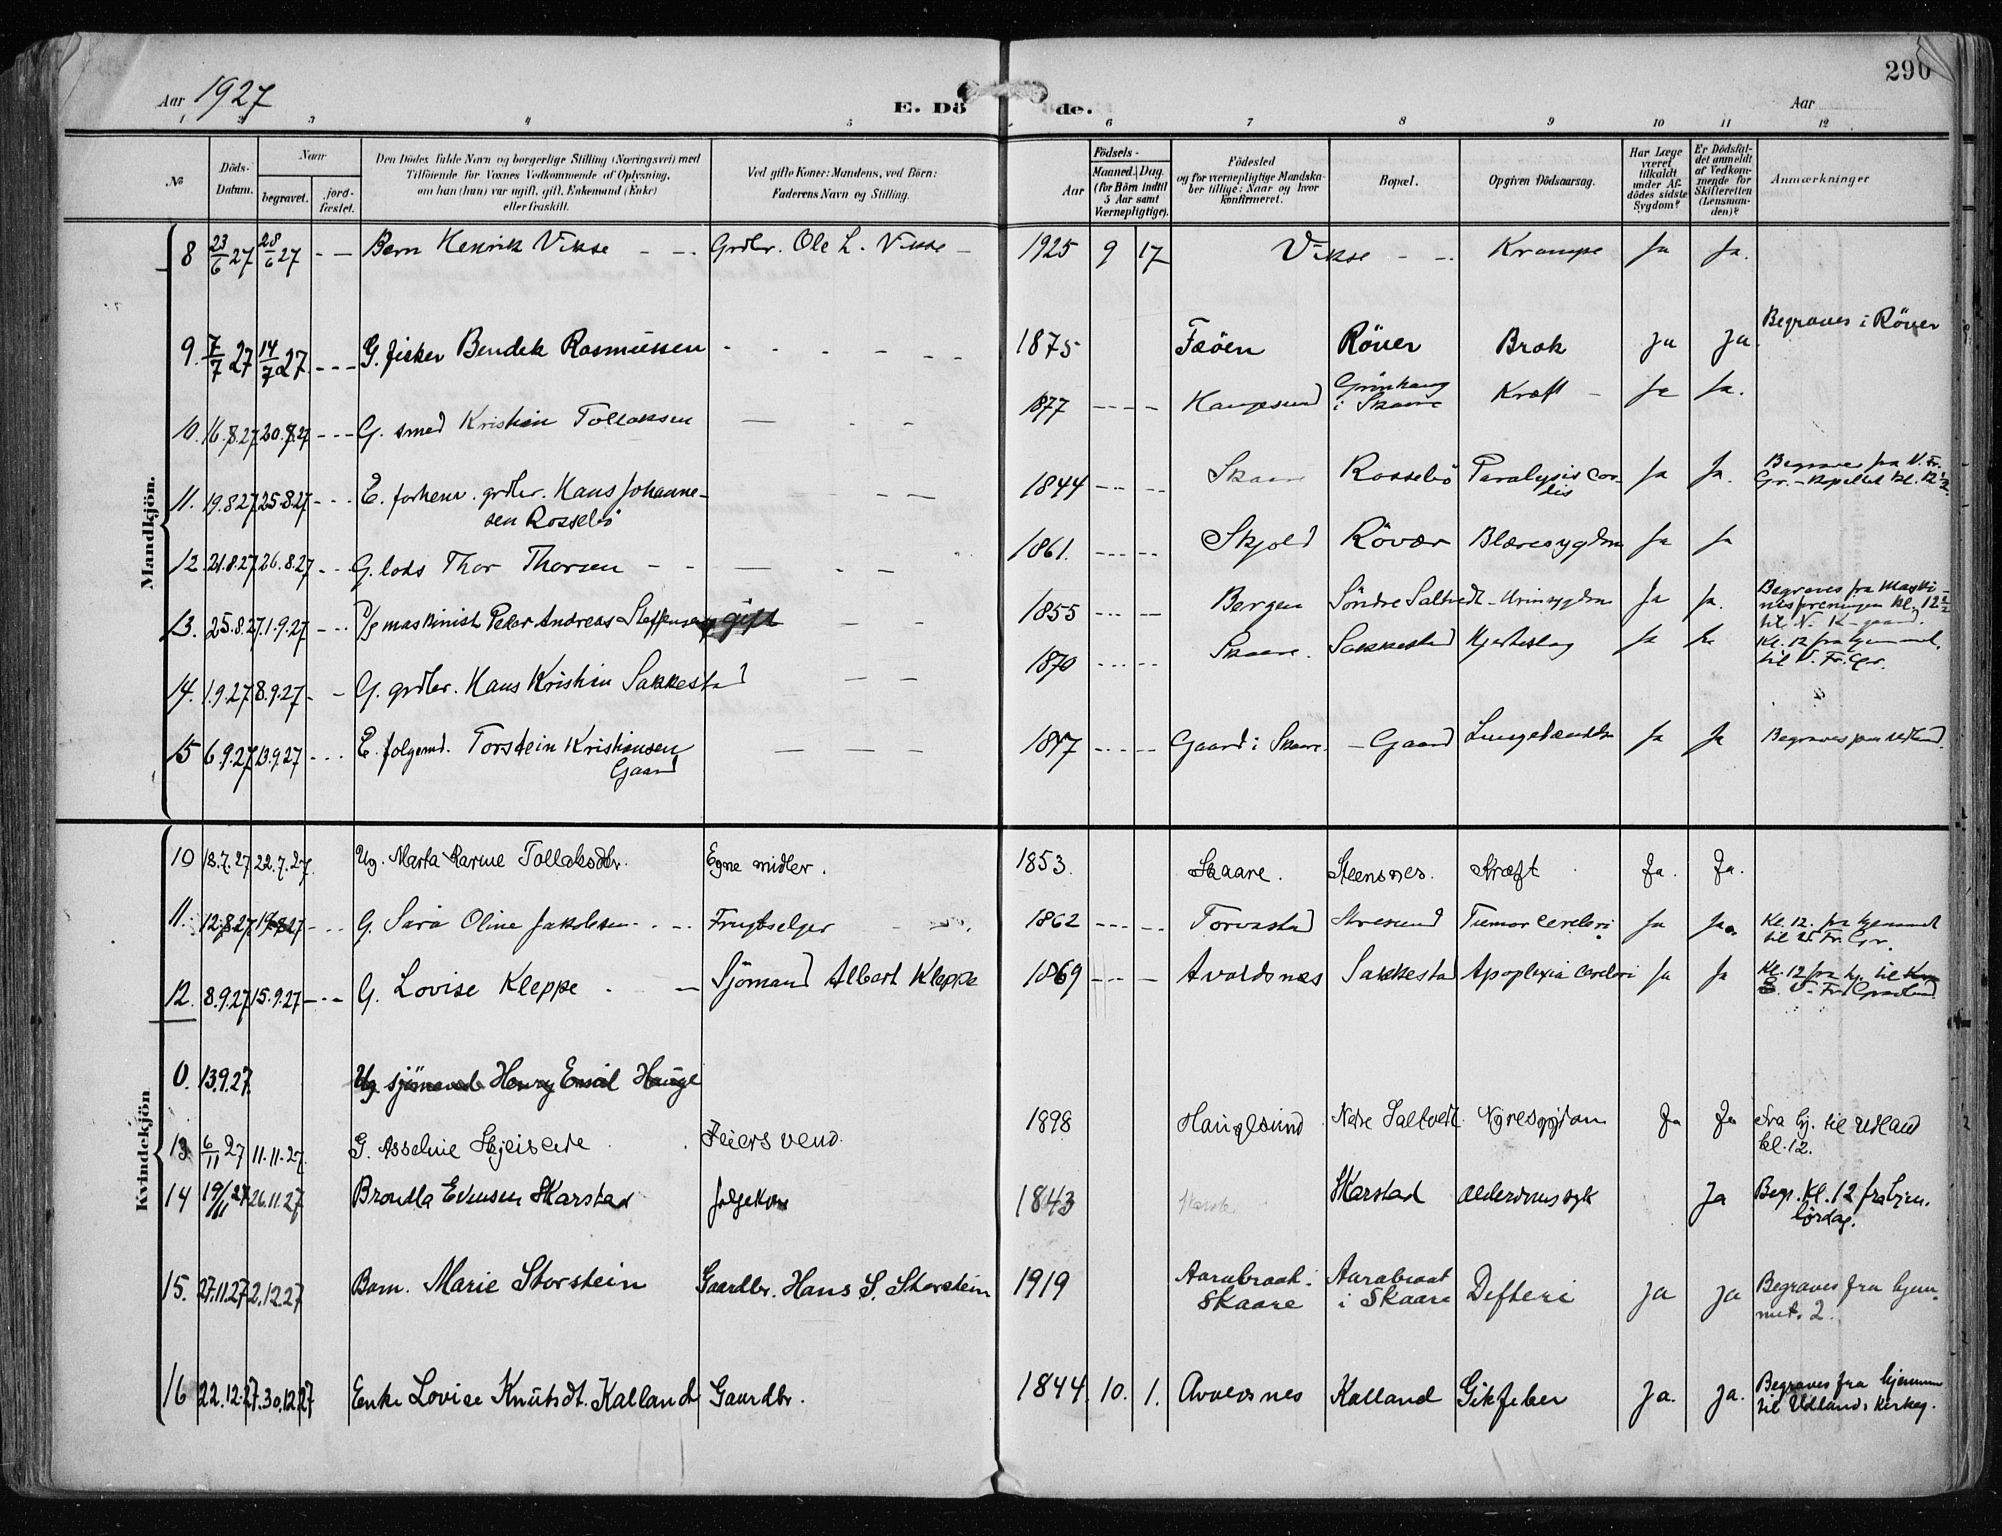 290
Aar 1927
E. Dö de.
Aar
1 2 3 4 5 6 7 8 9 10 11 12
No
Döds-Datum.
Naar
begravet.
jord-fæstet.
Den Dödes fulde Navn og borgerlige Stilling (Næringsvei) med
Tilföiende for Voxnes Vedkommende af Oplysning,
om han (hun) var ugift, gift, Enkemand (Enke)
eller fraskilt.
Ved gifte Koner: Mandens, ved Börn:
Faderens Navn og Stilling.
Födsels-
Aar
Maaned. Dag.
(for Börn indtil
5 Aar samt
Værnepligtige).
Födested
og for værnepligtige Mandska-
ber tillige: Naar og hvor
konfirmeret.
Bopæl.
Opgiven Dödsaarsag.
Har Læge
været
tilkaldt
under Af-
dödes sidste
Sygdom?
Er Dödsfal-
det anmeldt
af Vedkom-
mende for
Skifteretten
(Lensman-
den)?
Anmærkninger
Mandkjön.
8 23/6 27 28/6 27 - - Barn Henrik Vikse - - Grdbr. Ole L. Vikse - 1925 9 17 Vikse - - Krampe Ja Ja.
Begraves i Röver
9. 7/7 27 14/7 27. - - - G. fisker Bendik Rasmussen - - - - - 1875 Fæöen Röver Brok Ja Ja
10. 16.8.27 20.8.27 - - - G. smed Kristian Tollaksen - - - 1877 - - - - Haugesund Grönhaug i Skaare Kræft - Ja Ja.
11. 19.8.27 25.8.27 - - - E. forhenv. grdbr. Hans Johanne-
sen Rossebö - - - 1844 - - - - Skaare Rossebö Paralysis cor-
dis Ja Ja. Begraves fra V. Fr.
Gr. - kapellet kl. 12 1/2.
12. 21.8.27 26.8.27 - - - G. lods Thor Thorsen - - - - - 1861. - - - - Skjold Rövær Blæresygdom Ja Ja
13. 25.8.27 1.9.27 - - - maskinist Peder Andreas Steffensen gift - - 1855 - - - - Bergen Söndre Saltvedt - Urinsygdom Ja Ja. Begraves fra Maski-
nistforeningen kl. 12
til N. K-gaard.
14. 1.9.27 8.9.27 - - G. grdbr. Hans Kristian Sakkestad - - 1870 - - - - Skaare. Sakkestad Hjerteslag Ja Ja Kl. 12 fra hjemmet,
til V. Fr. Gr.
15 6.9.27 13.9.27 - - - E. folgemd. Torstein Kristiansen
Gaard - - - 1847 - - - - Gaard i Skaare. - Gaard Lungebetændelse Ja Ja Begraves paa Udland.
Kvindekjön
10 18.7.27 22.7.27. Ug. Marta Karine Tollaksdtr. Egne midler. 1853. Skaare. Steensnes. Kræft Ja. Ja.
11. 12.8.27 19.8.27 - - - G. Sara Oline Jakobsen - - - Frugtselger 1862 - - - - Torvastad Stresund Tumor cerebri Ja Ja. Kl. 12. fra hjemmet
til V. Fr. Gr.
12. 8.9.27 15.9.27 - - - G. Lovise Kleppe - - Sjömand Albert Kleppe 1869 - - - - Avaldsnes Sakkestad Apoplexia cerebri Ja Ja Kl. 12 fra hj. til
V. Fr. Gravlund
0. 13.9.27. Ug sjömand Henry Emil Hauge
13 6/11 27 11.11.27. G. Asseline Skjeisede Feiersvend. 1898 Haugesund Nedre Saltvedt. Nyresygdom Ja Ja Fra hj. til Udland
kl. 12.
14 19/11 27 26.11.27 Brondla Evensen Skarstad folgekon 1843 Skarstad Alderdomssyk Ja Begr. Kl. 12 fra hjem.
lördag.
15. 27.11.27 2.12.27 Barn. Marie Storstein Gaardbr. Hans S. Storstein 1919 Aarabraat i
Skaare Aarabraat
i Skaare Difteri Ja Ja Begraves fra hjem-
met. 2.
16 22.12.27. 30.12.27 Enke Lovise Knutsdt. Kalland Gaardbr. 1844. 10. 1. Avaldsnes Kalland Giktfeber Ja. Ja. Begraves fra hjemmet
til Udlands Kirkeg.